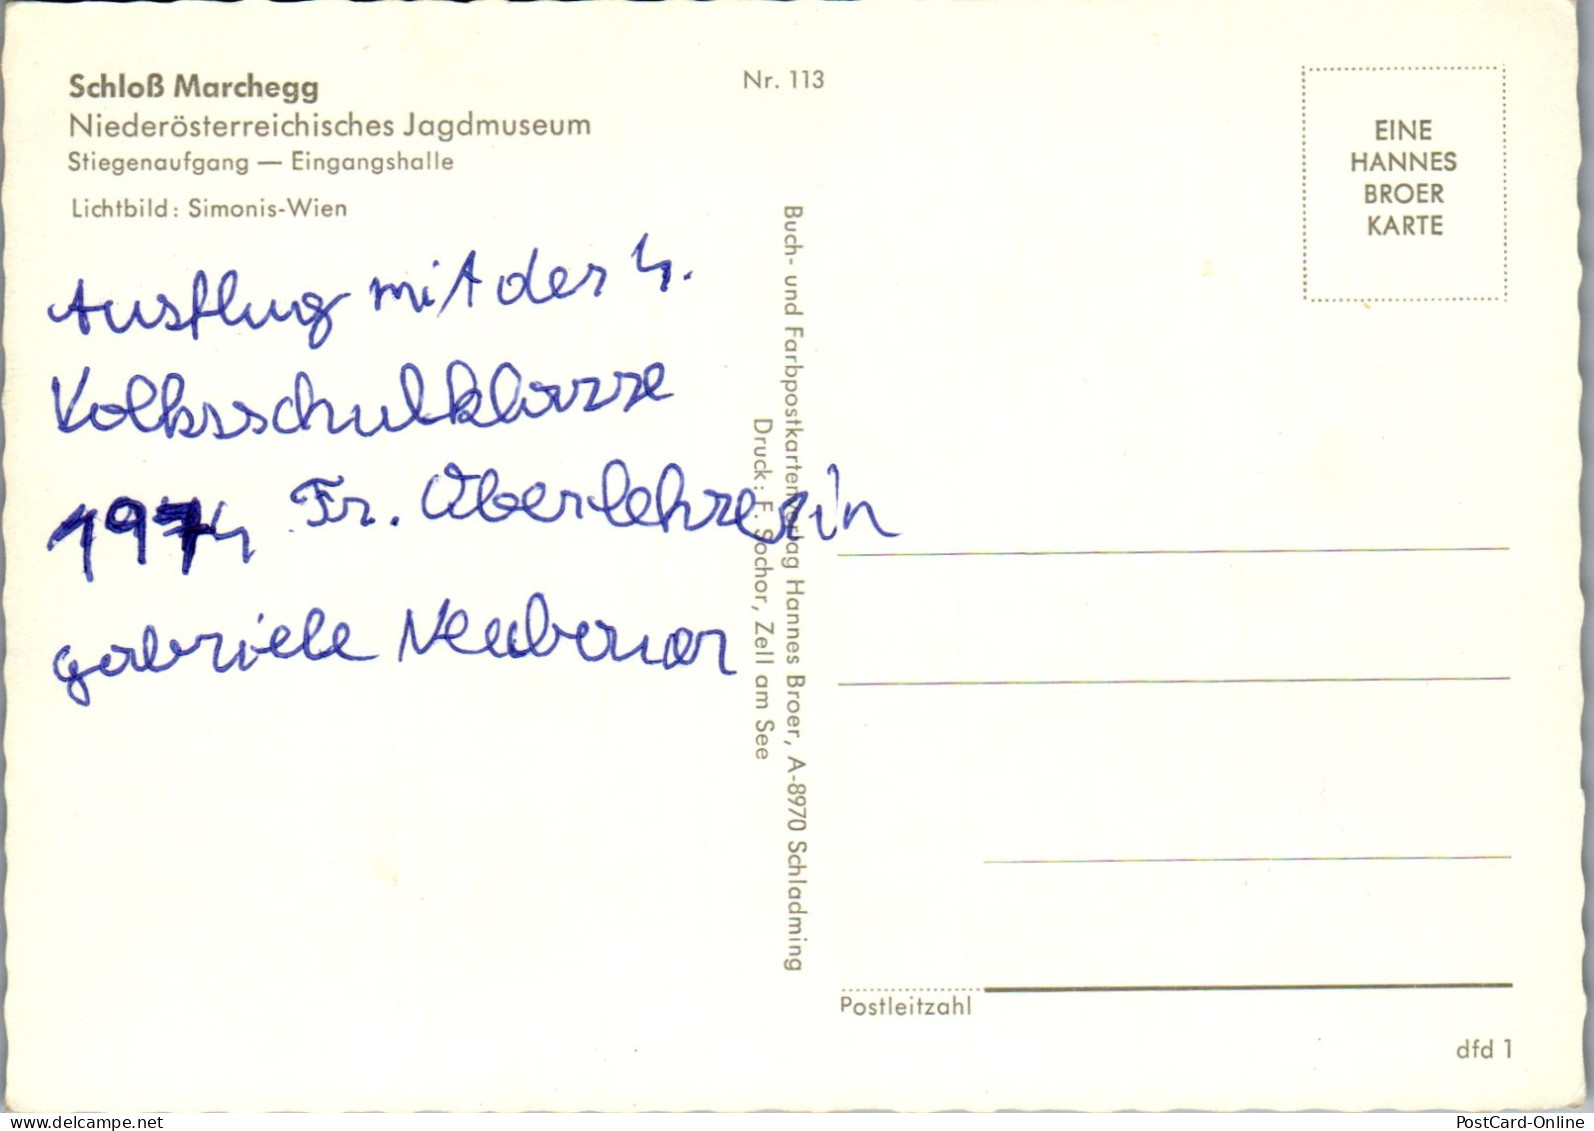 Schloß Marchegg
Niederösterreichisches Jagdmuseum
Stiegenaufgang — Eingangshalle
Lichtbild: Simonis-Wien
Ausflug mit der 4.
Volksschulklasse
1974 Fr. Oberlehrerin
gabriele Neubauer
Nr. 113
Buch- und Farbpostkartenverlag Hannes Broer, A-8970 Schladming
Druck: F. Sochor, Zell am See
EINE
HANNES
BROER
KARTE
Postleitzahl
dfd 1
PostCard-Online